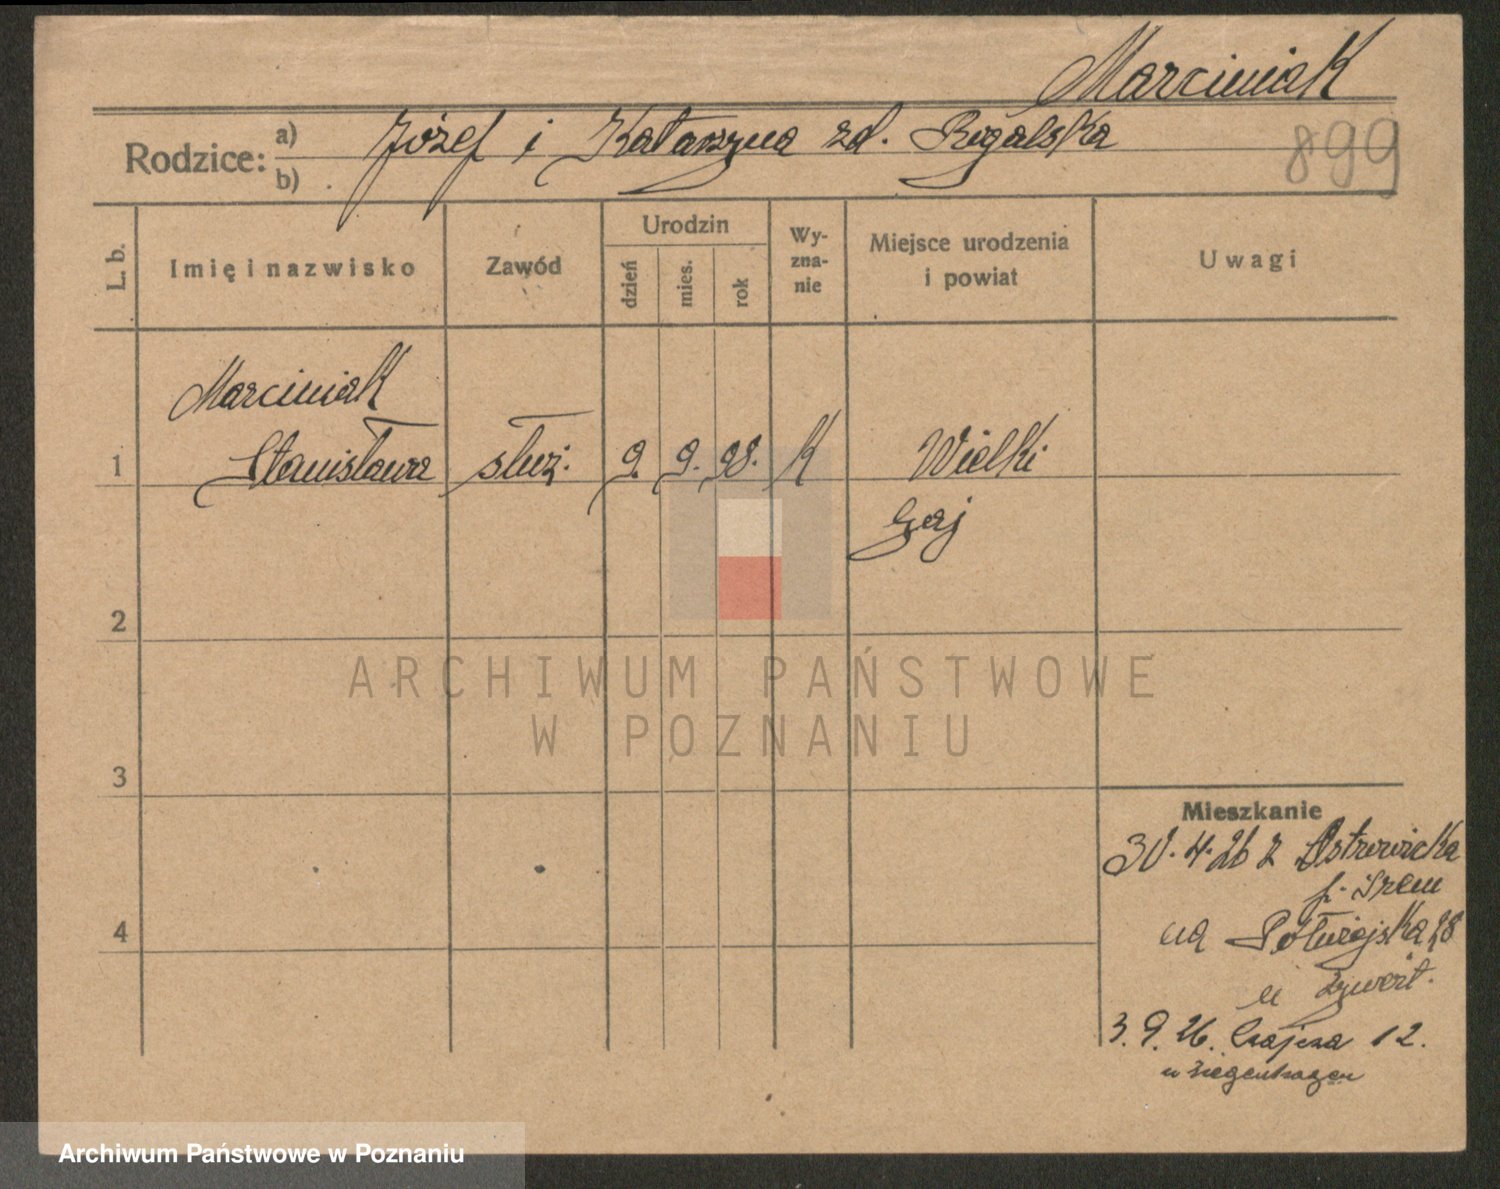 Marciniak
899
Rodzice: a) Józef i Katarzyna zd. Rogalska
b)
L. b.
Imię i nazwisko
Zawód
Urodzin
dzień
mies.
rok
Wy-
zna-
nie
Miejsce urodzenia
i powiat
Uwagi
Marciniak
1 Stanisława służ. 9. 9. 98. K Wielki
Gaj
2
ARCHIWUM PAŃSTWOWE
W POZNANIU
3
Mieszkanie
30.4.26 z
p. Śrem
4
na 28
u
3.9.26. Czajcza 12.
u Ziegenhagen
Archiwum Państwowe w Poznaniu